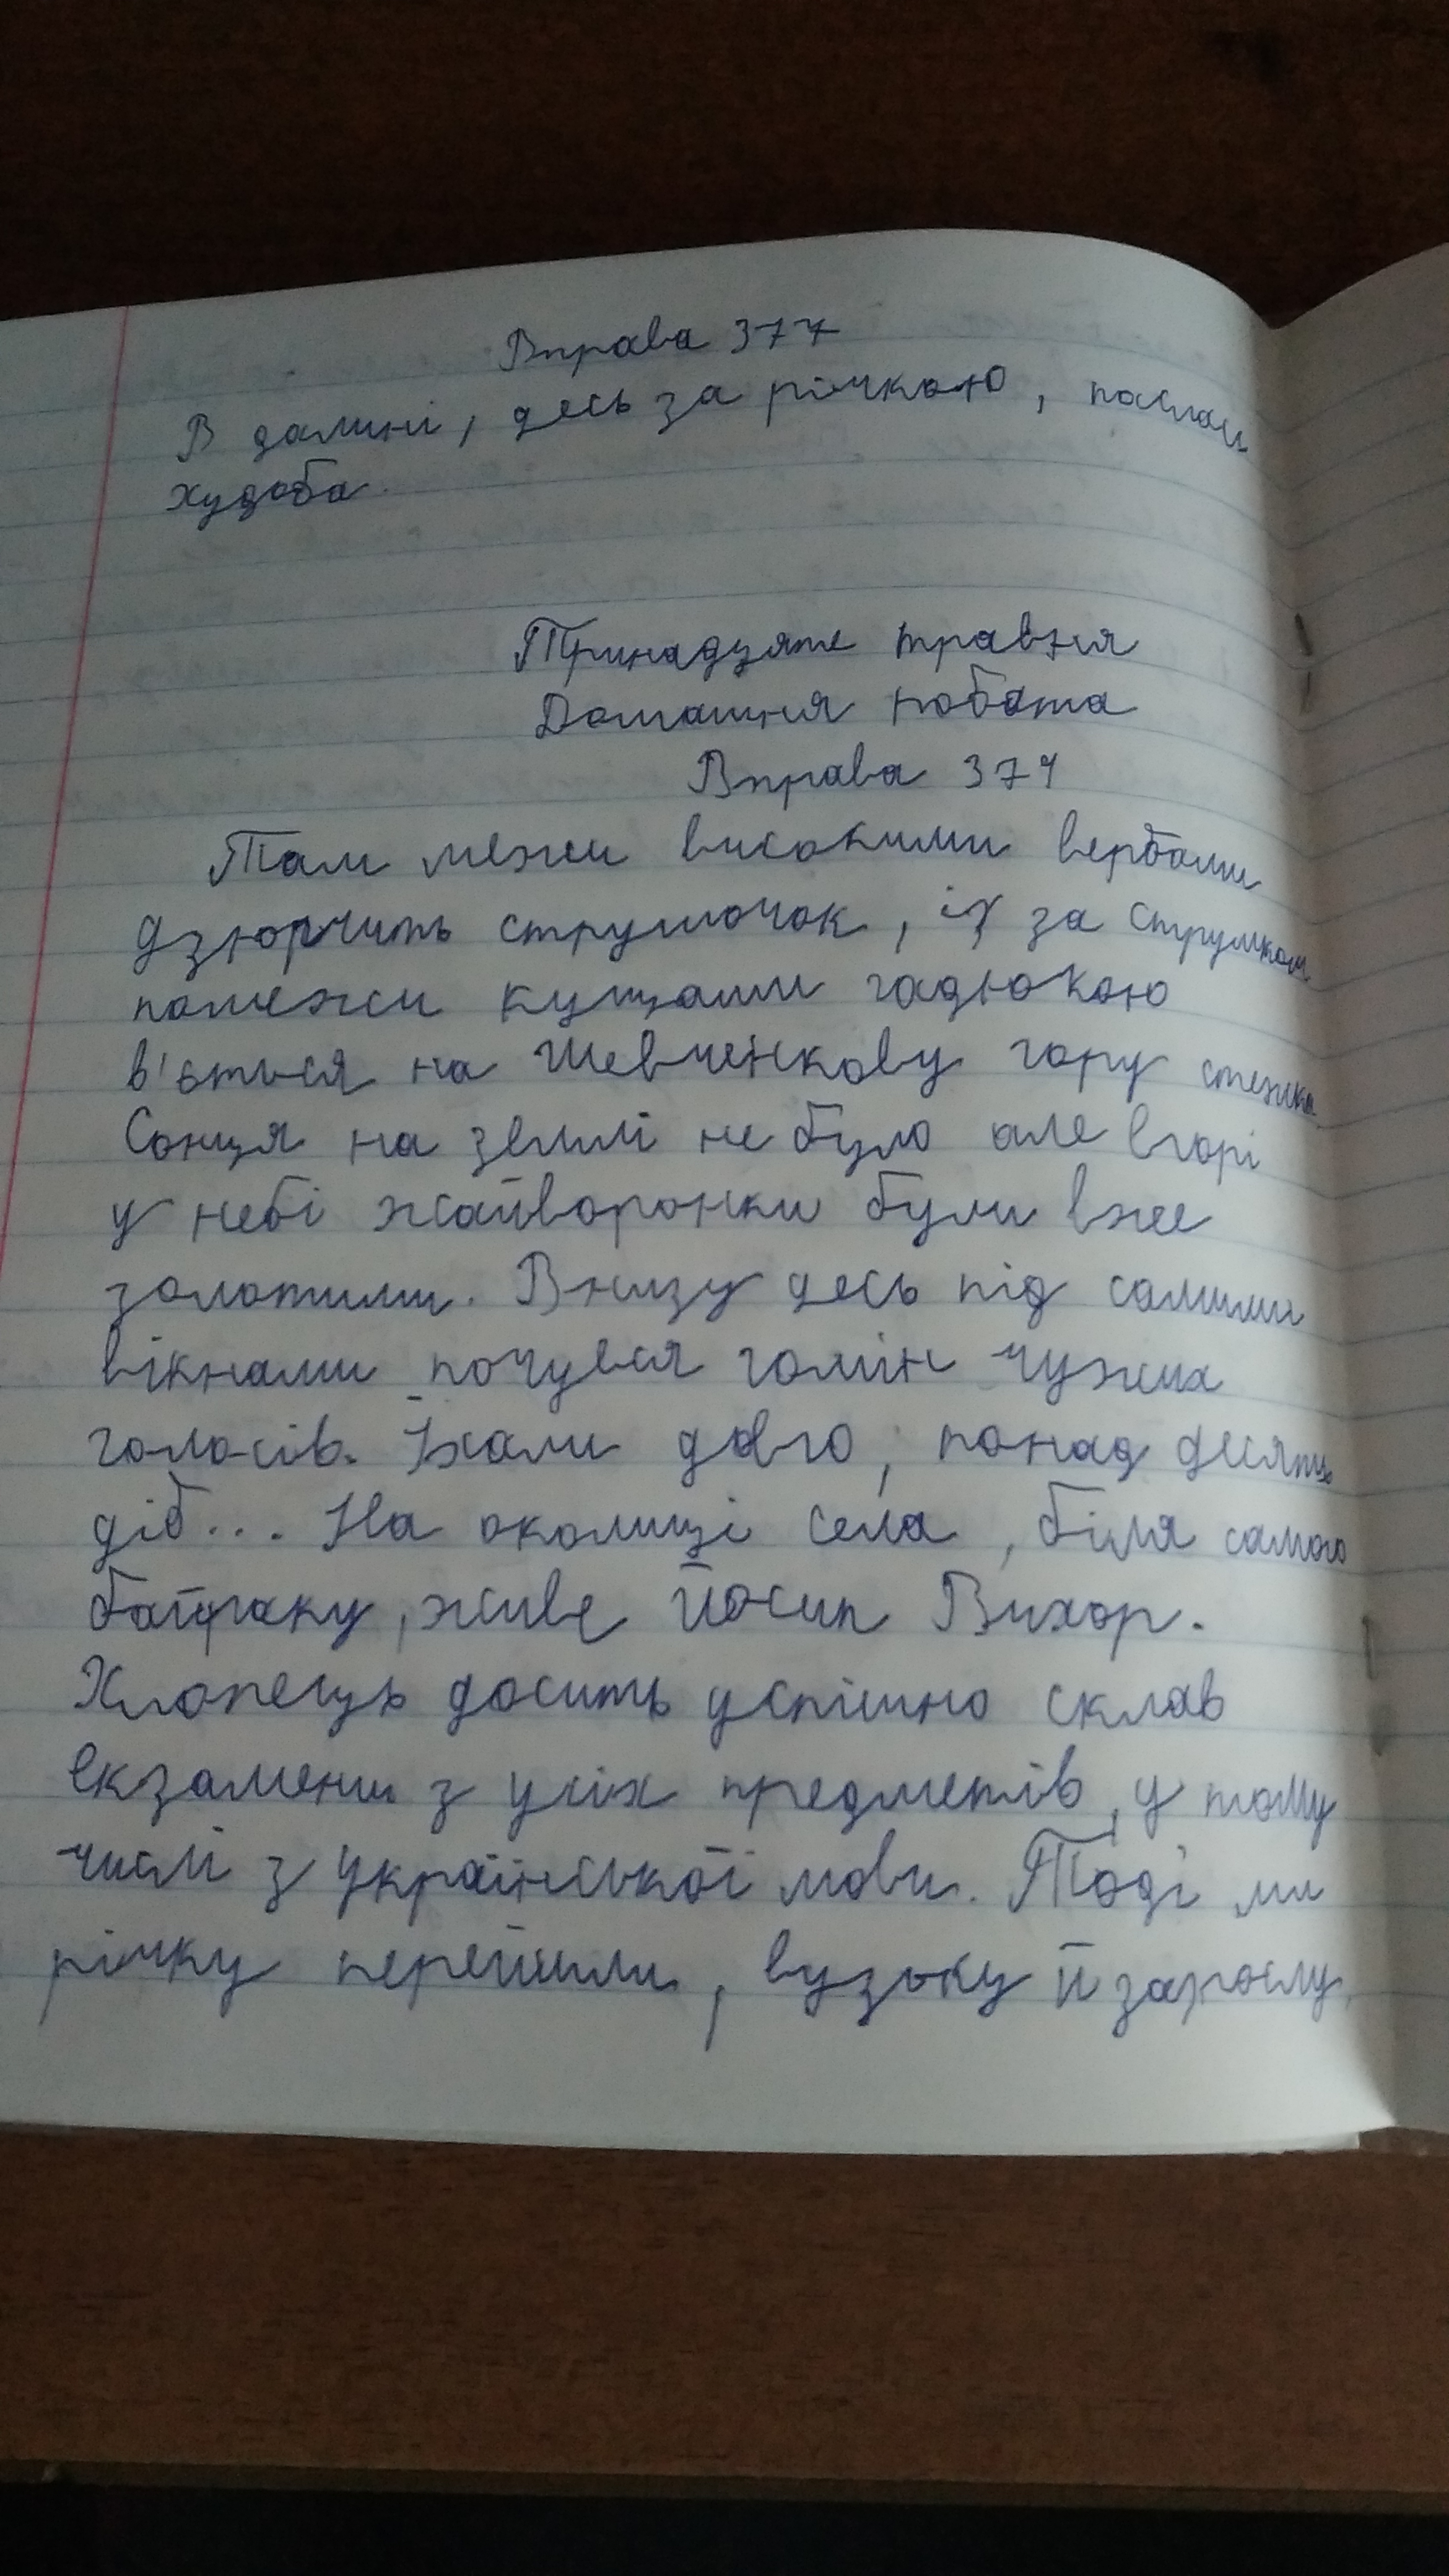 Вправа 377
В долині, десь за річкою, паслась
худоба.
Тринадцяте травня
Домашня робота
Вправа 374
Там межи високими вербами
дзюрчить струмочок, із за струмком
помежи кущами гадюкою
в'ється на Шевченкову гору стежка
Сонця на землі не було але вгорі
у небі жайворонки були вже
золотими. Внизу десь під самими
вікнами почувся гомін чужих
голосів. Їхали довго, понад десять
діб... На околиці села, біля самого
байраку, живе Йосип Вихор.
Хлопець досить успішно склав
екзамени з усіх предметів, у тому
числі з української мови. Тоді ми
річку перейшли, вузьку й зарослу,